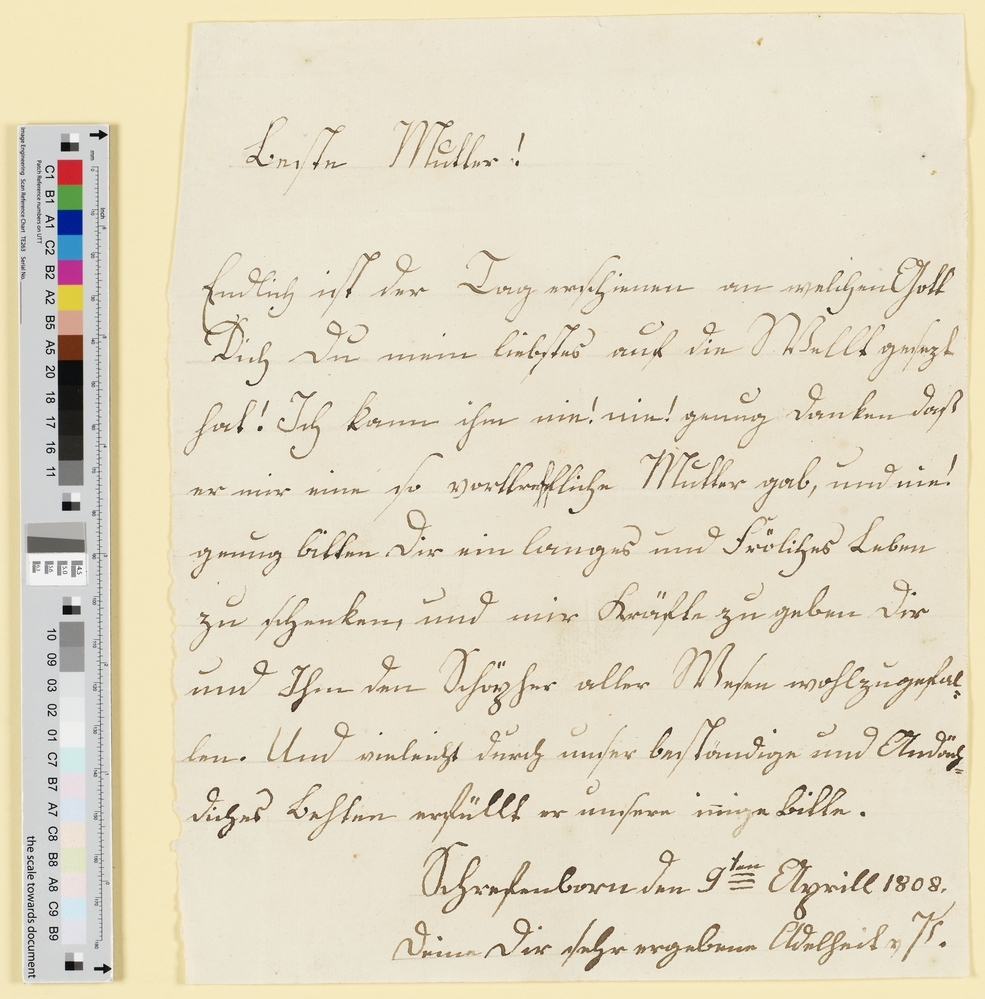 Beste Mutter!
Endlich ist der Tag erschienen an welchen Gott
Dich Du mein liebstes auf die Wellt gesezt
hat! Ich kann ihm nie! nie! genug danken daß
er mir eine so vorttreffliche Mutter gab, und nie!
genug bitten Dir ein langes und Fröliches Leben
zu schenken, und mir Kräfte zu geben Dir
und Ihm den Schöpher aller Wesen wohlzugefal=
len. Und vieleicht durch unser beständige und Andäch=
diches Behten erfüllt er unsere innige bitte.
Schrefenborn den 9ten Aprill 1808.
Deine Dir sehr ergebene Adelheit v
the scale towards document
Image Engineering Scan Reference Chart TE263 Serial No.
Patch Reference numbers on UTT
mm
inch
C1 B1 A1 C2 B2 A2 B5 A5 20 18 17 16 11
10 09 03 02 01 C7 B7 A7 C8 B8 A8 C9 B9